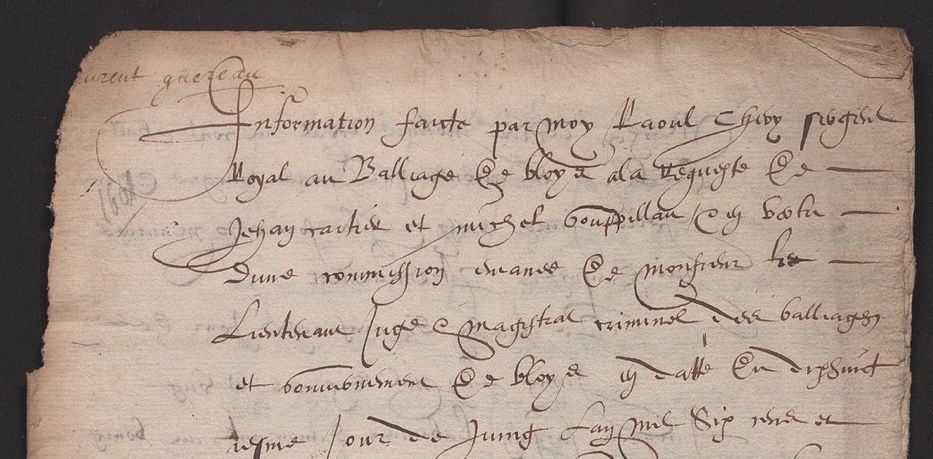 Information faicte par moy Raoul Chevy sergent
Royal au Balliage de bloys a la Requeste de
Jehan cartier et michel bouppillau en vertu
dune commission emanee de monsieur le
Lieutenant Juge magistrat criminel des balliages
et gouvernement de bloys en datte du dixhuict
iesme Jour de Juing Lan mil Six cens et